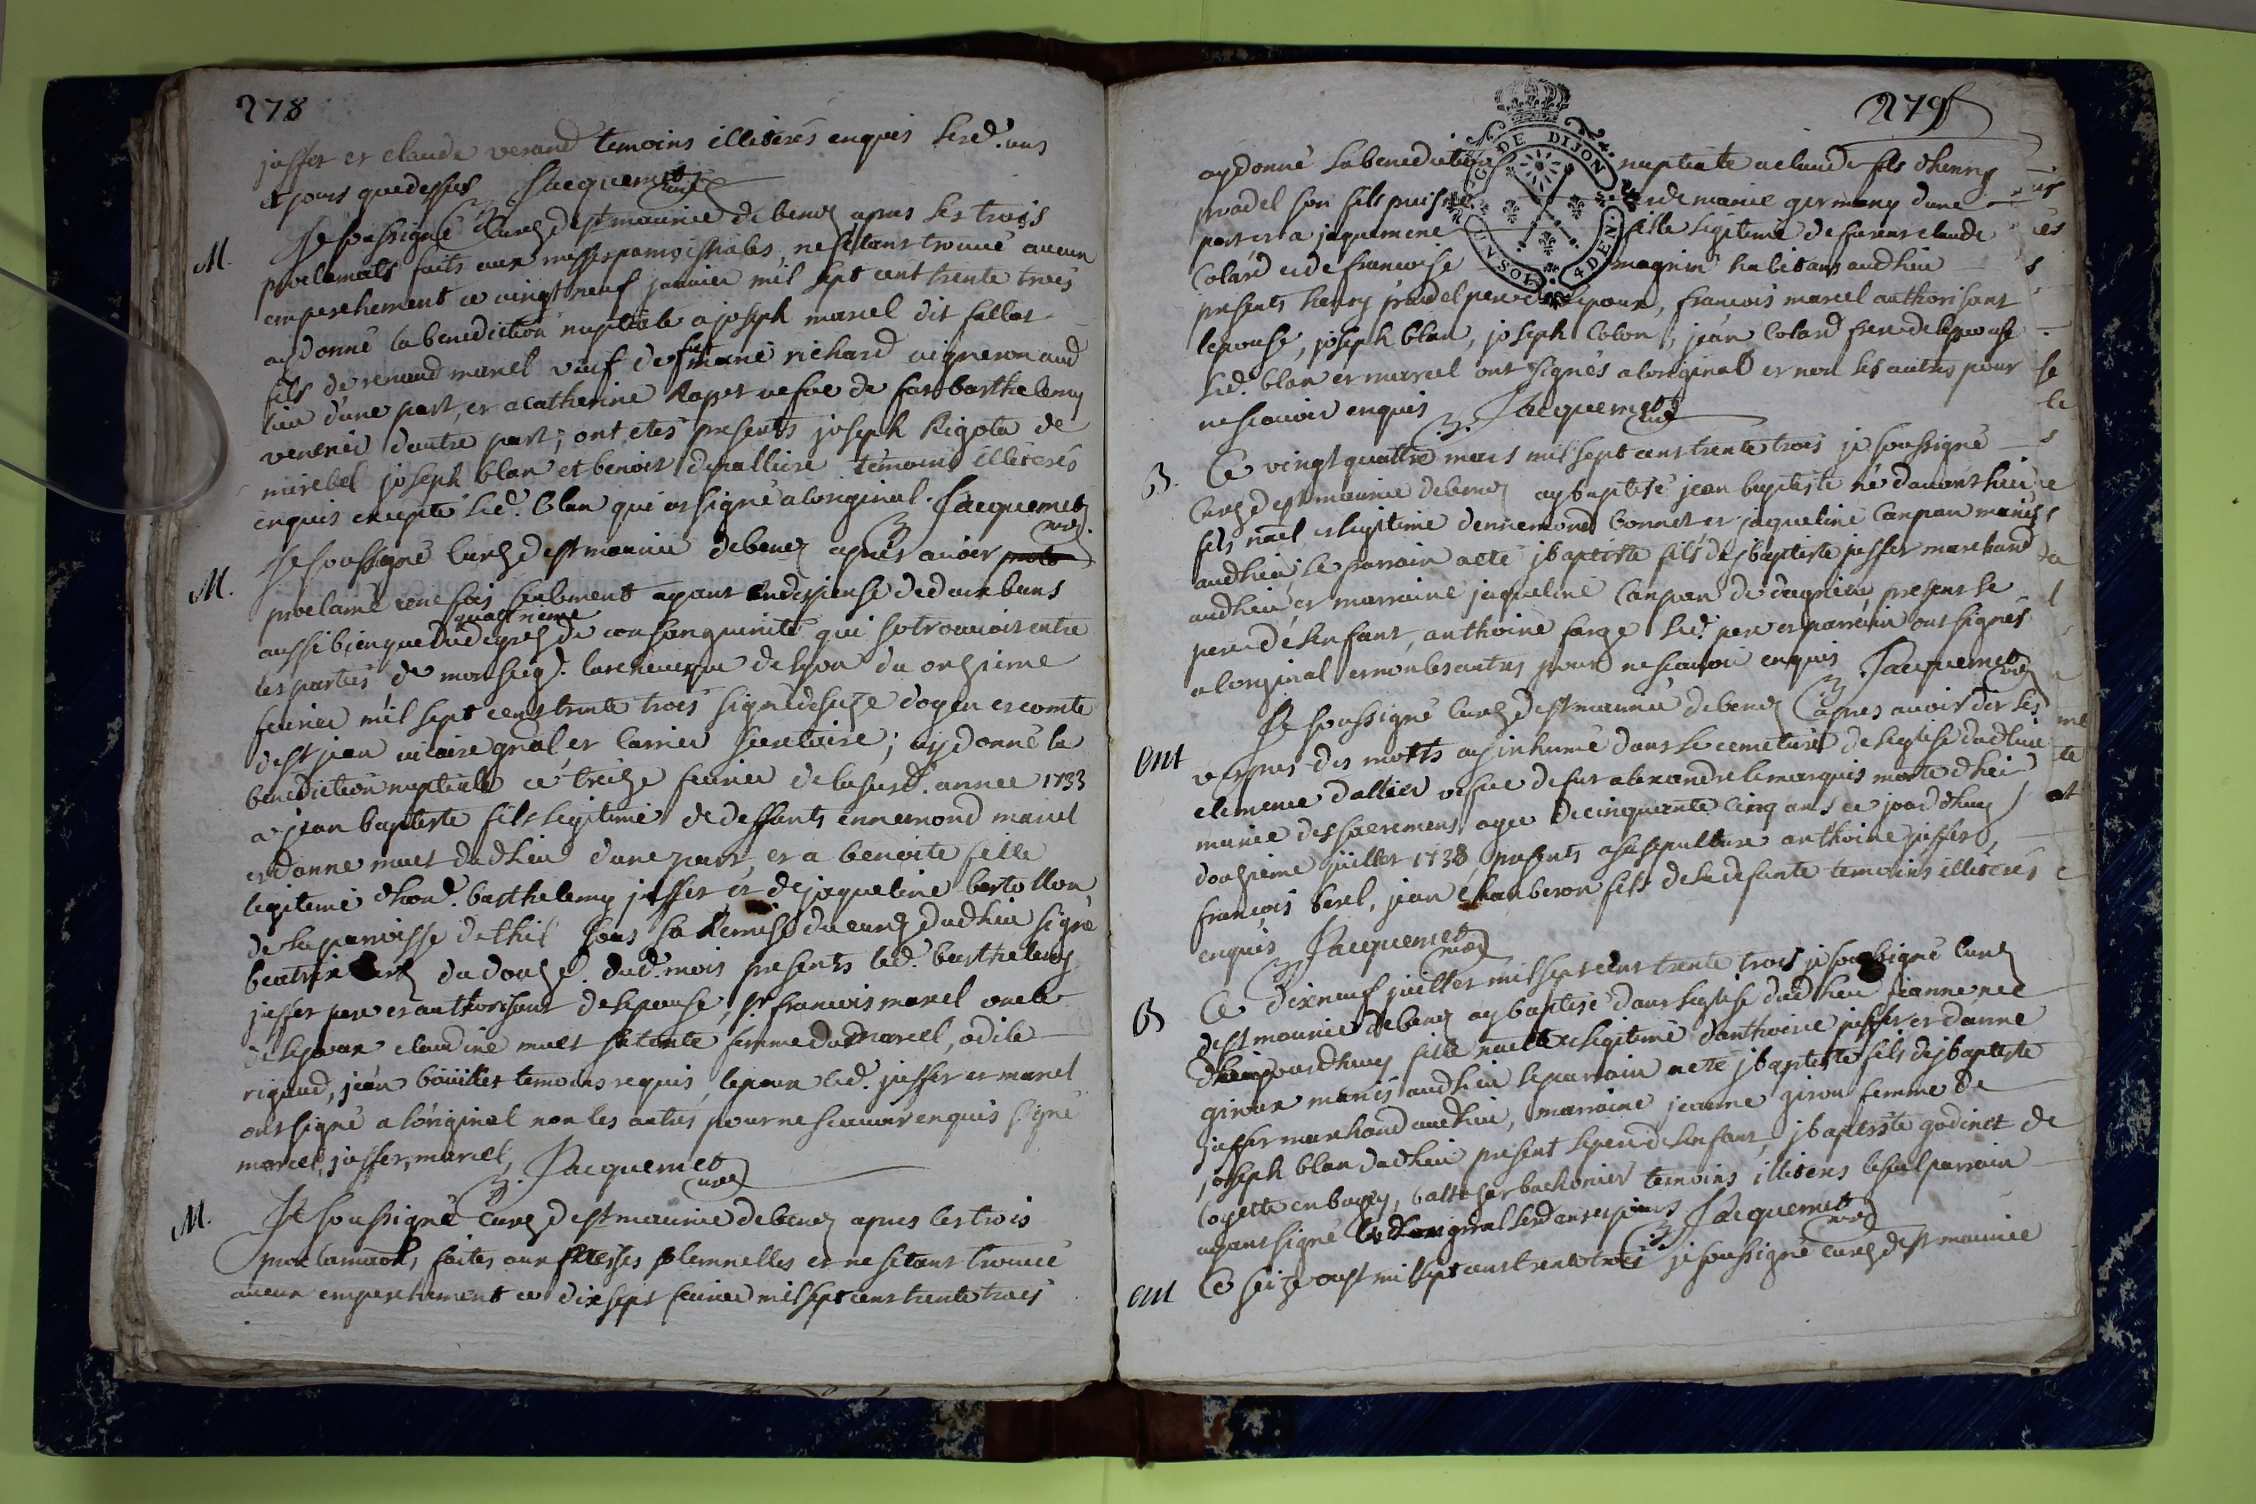 278
juffet et claude verand temoins illiterés enquis lesd. ans
et jours que dessus Jacquemet curé
M. Je soussigné curé de st maurice de benoz apres les trois
proclamats faits aux messes paroissiales, ne setant trouvé aucun
empeschement ce vingt neuf janvier mil sept cent trente trois
ay donné la benediction nuptiale a joseph marcel dit fallat
fils de renaud marcel veuf de fut marie richard vigneron aud
lieu d'une part, et a catherine Rapet vefve de fut barthelemy
venerier dautre part; ont etés presents joseph Rigota de
mirebel joseph blan et benoit depalliere temoins illiterés
enquis excepté led. blan qui at signé aloriginal. Jacquemet
curé
M. Je soussigné curé de st maurice de benoz apres avoir
proclamé une fois seulement ayant eu dispense de deux bans
quatrieme
aussi bien que du degrez de consanguinité qui se trouvoit entre
les parties de monseigr. larcheveque de lyon du onzieme
fevrier mil sept cent trente trois signé desuze doyen et comte
de st jean vicaire gnal, et carrier secretaire; ay donné la
benediction nuptiale ce treize fevrier de lasusd. année 1733
a jean baptiste fils legitime de deffunts ennemond marcel
et danne muet dudlieu dune part, et a benoite fille
legitime dhon. barthelemy juffet et de jaqueline bertollon
de la paroisse de thil sous la Remise du curé dudlieu signé
beatrix curé du douze dud. mois presents led. barthelemy
juffet pere et authorisant de lepouse, sr. francois marcel oncle
de lepoux claudine muet sa tante femme dud marcel, odile
rigaud, jean boüillet temoins requis, lepoux led. juffet et marcel
ont signé a loriginal non les autres pour ne scavoir enquis signé
marcel, juffet, marcel, Jacquemet
curé
M. Je soussigné curé de st maurice de benoz apres les trois
proclamaõns, faites aux messes solemnelles et ne setant trouvé
aucun empeschement ce dix sept fevrier mil sept cent trente trois
279
G. DE DIJON
UNSOL. 4 DEN.
ay donné la benediction nuptiale a claude fils dhenry
pradel son fils puisné et de marie germany dune
part et a jaquemine fille legitime de fut claude
Colard et de francoise magnin habitans audlieu
presents henry pradel pere de lepoux, francois marcel authorisant
lepouse, joseph blan, joseph Colon, jean Colard frere de lepouse
led. blan et marcel ont signés aloriginal et non les autres pour
ne scavoir enquis Jacquemet
curé
B. Ce vingt quattre mars mil sept cent trente trois je soussigné
curé de st maurice de benoz ay baptisé jean baptiste né davant hier
fils nael et legitime dennemond bonnet et jaqueline Canpan mariés
audlieu, le parrain a eté jbaptiste fils de jbaptiste juffet marchand
audlieu, et marraine jaqueline Canpan de dagnieu, present le
pere de lenfant, anthoine farge led. pere et parrain ont signés
a loriginal et non les autres pour ne scavoir enquis Jacquemet
curé
ent Je soussigné curé de st maurice de benoz apres avoir dit les
vespres des morts ay inhumé dans le cemetiere de leglise dudlieu
clemence dallier vefve de fut alexandre lemarquis morte dhier
munie des sacremens, agée de cinquante cinq ans ce jourdhuy
douzieme juillet 1733, presents asa sepulture anthoine juffet,
francois berel, jean chanberon fils de la defunte temoins illiterés
enquis Jacquemet
curé
B Ce dix neuf juillet mil sept cent trente trois je soussigné curé
de st maurice de benoz ay baptisé dans leglise dudlieu jeanne née
dhier jourdhuy fille naelle et legitime danthoine juffet et danne
giroux mariés audlieu leparrain a eté jbaptiste fils de jbaptiste
juffet marchand audlieu, marraine jeanne giron femme de
joseph blan dudlieu present le pere de lenfant, jbaptiste godinet de
loyette en bugey, baltezar bachonier temoins illiterés le seul parrain
ayant signé loriginal lesd ans et jours Jacquemet
curé
ent Ce seize aoust mil sept cent trente trois je soussigné curé de st maurice